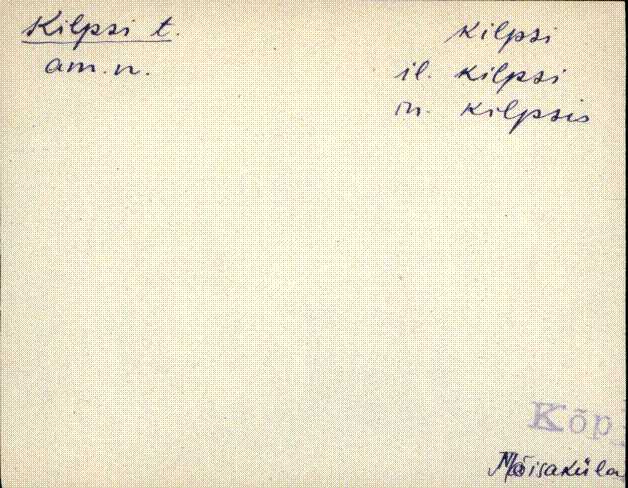 Kilpsi t. kilpsi
am. n. il. kilpsi
in. kilpsis
Kõp
Mõisaküla